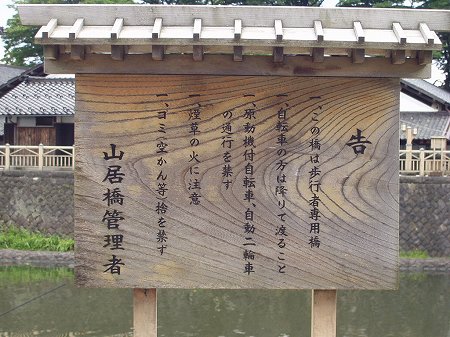 告
一、この橋は歩行者専用橋
一、自転車の方は降りて渡ること
一、原動機付自転車、自動二輪車
の通行を禁ず
一、煙草の火に注意
一、ゴミ、空かん等捨を禁ず
山居橋管理者